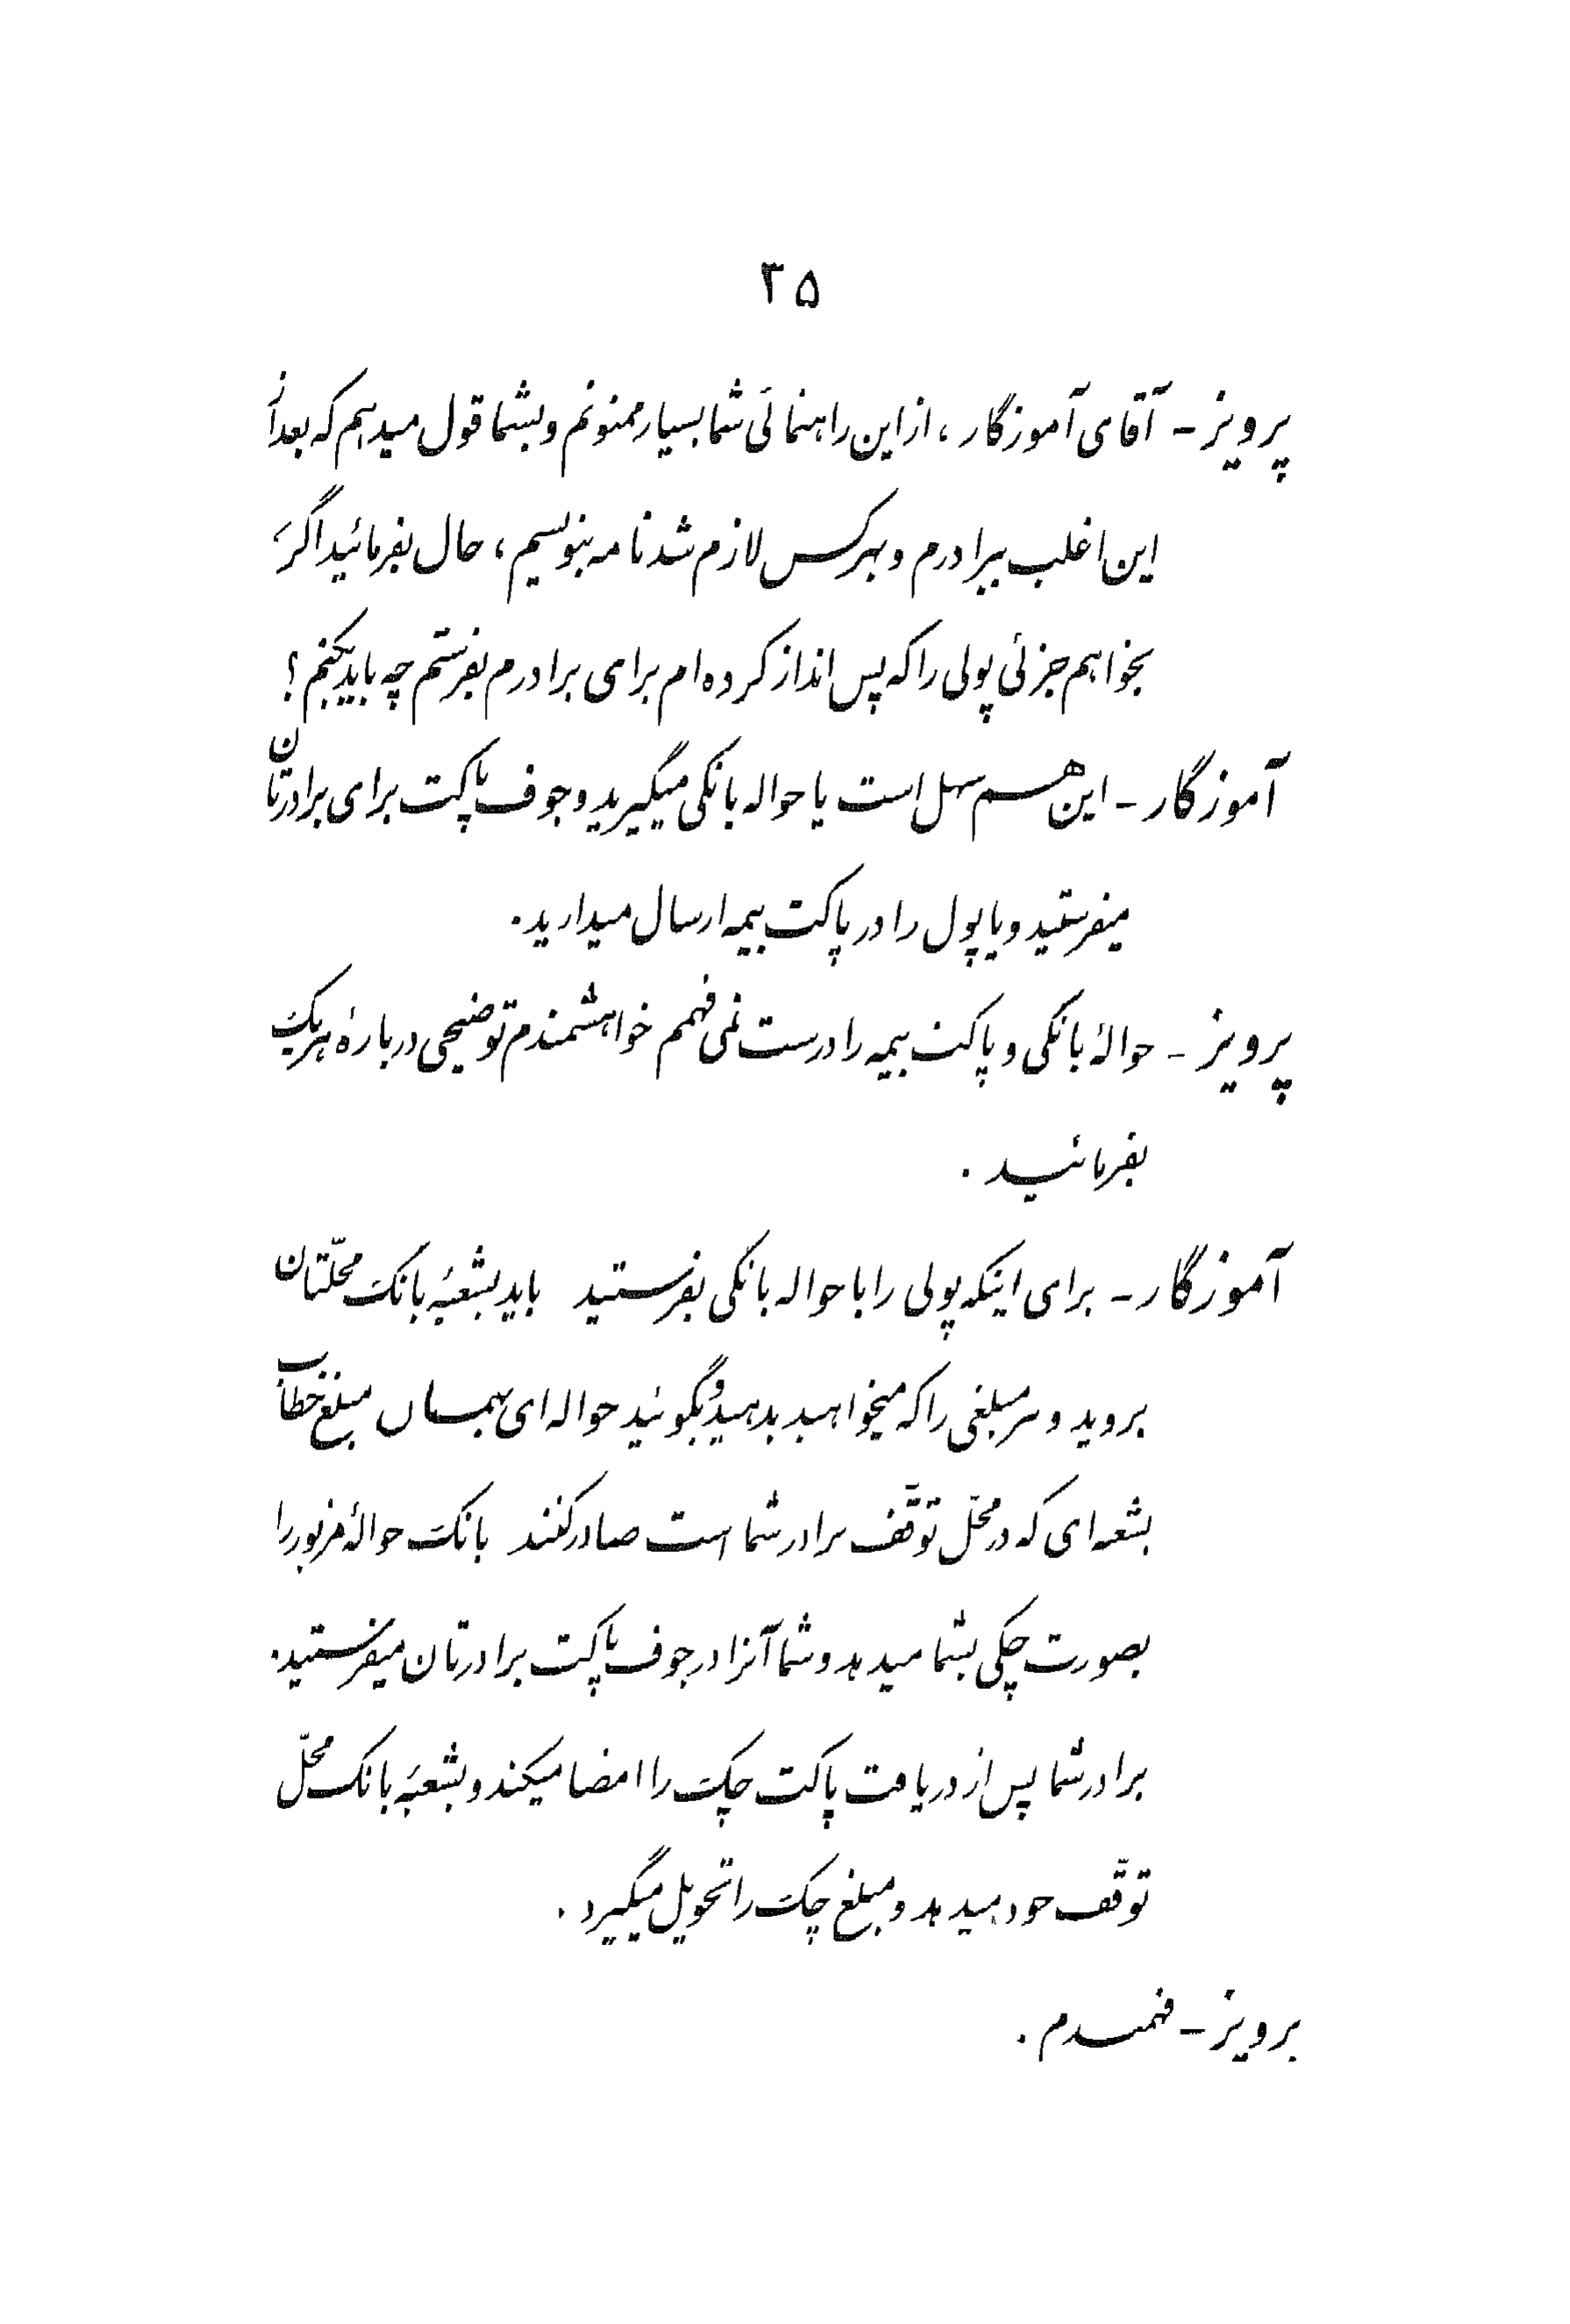 ۳۵
پرویز - آقای آموزگار، از این راهنمائی شما بسیار ممنونم و بشما قول میدهم که بعد از
این اغلب ببرادرم و بهرکس لازم شد نامه بنویسم، حال بفرمائید اگر
بخواهم جزئی پولی را که پس انداز کرده ام برای برادرم بفرستم چه باید بکنم؟
آموزگار - این هم سهل است یا حواله بانکی میگیرید و جوف پاکت برای برادرتان
میفرستید و یا پول را در پاکت بیمه ارسال میدارید.
پرویز - حوالهٔ بانکی و پاکت بیمه را درست نمی فهمم خواهشمندم توضیحی دربارهٔ هریک
بفرمائید.
آموزگار - برای اینکه پولی را با حواله بانکی بفرستید باید بشعبهٔ بانک محلّتان
بروید و هر مبلغی را که میخواهید بدهید و بگوئید حواله ای بهمان مبلغ خطاب
بشعبه ای که در محلّ توقّف برادر شما است صادر کنند بانک حوالهٔ مزبور را
بصورت چکی بشما میدهد و شما آنرا در جوف پاکت برادرتان میفرستید.
برادر شما پس از دریافت پاکت چک را امضا میکند و بشعبهٔ بانک محلّ
توقّف خود میدهد و مبلغ چک را تحویل میگیرد.
پرویز - فهمیدم.